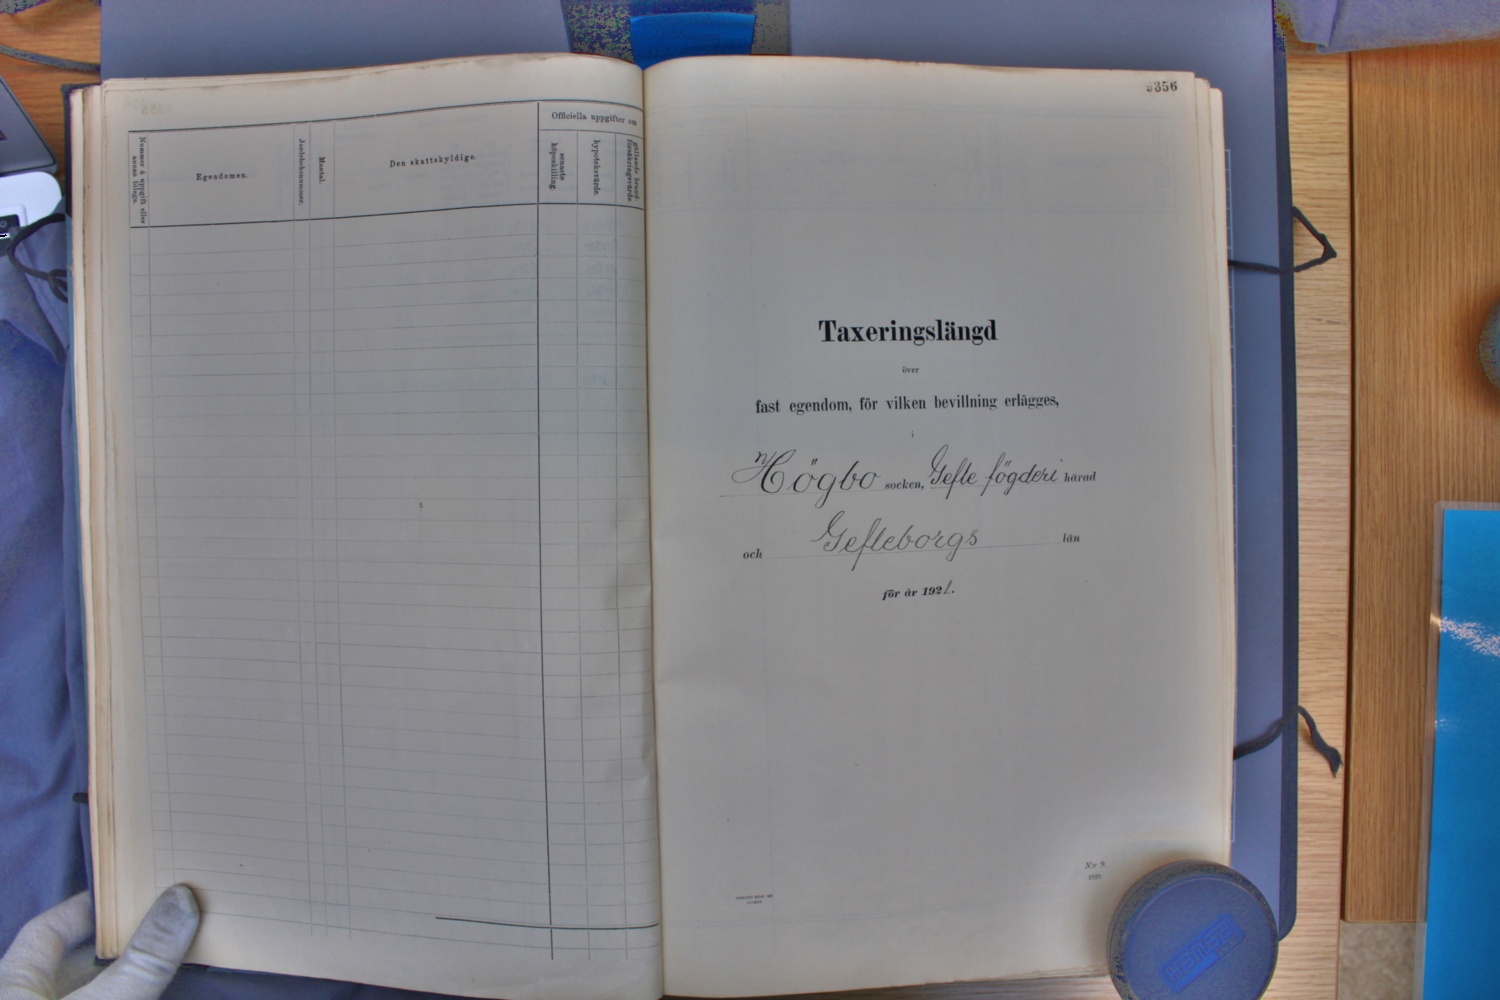 Officiella uppgifter om
Nummer å uppgift eller
annan bilaga.
Egendomen.
Jordeboksnummer.
Mantal.
Den skattskyldige.
senaste
köpeskilling.
hypoteksvärde.
gällande brand-
försäkringsvärde.
8356
Taxeringslängd
över
fast egendom, för vilken bevillning erlägges,
i
Högbo socken, Gefle fögderi härad
och Gefleborgs län
för år 1921.
N:r 9.